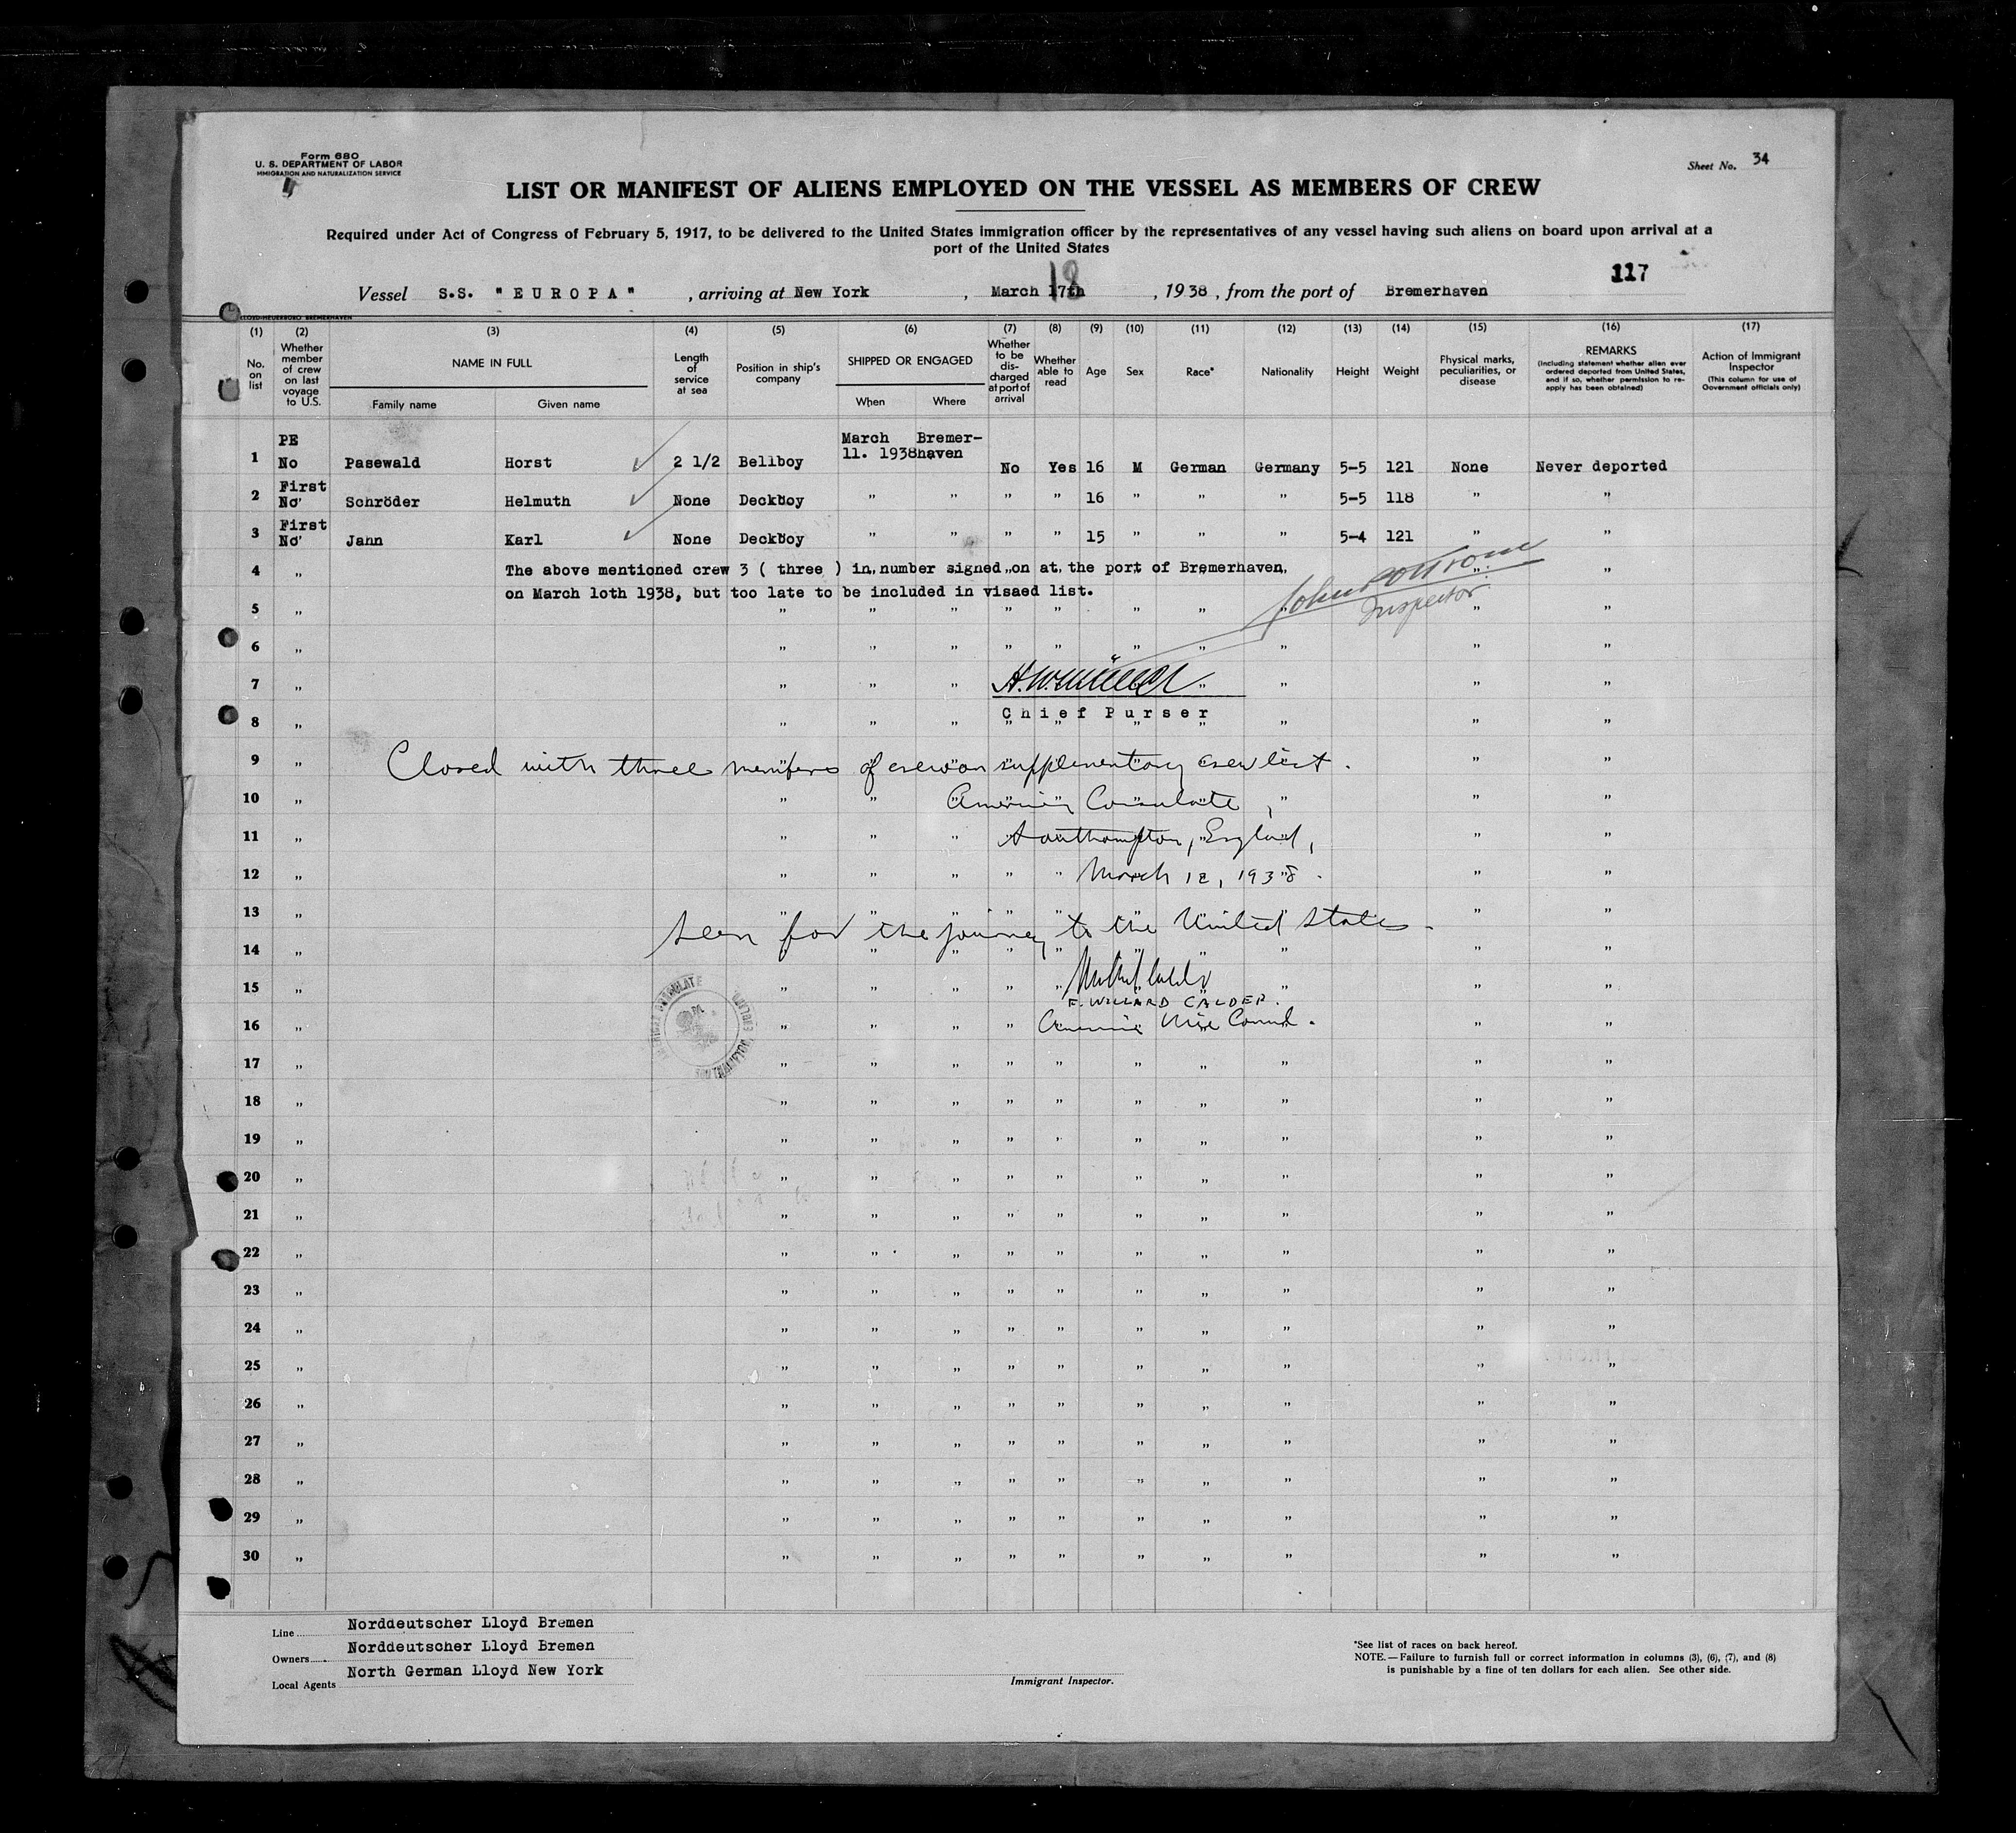 Form 680
U. S. DEPARTMENT OF LABOR
IMMIGRATION AND NATURALIZATION SERVICE
Sheet No. 34
LIST OR MANIFEST OF ALIENS EMPLOYED ON THE VESSEL AS MEMBERS OF CREW
Required under Act of Congress of February 5, 1917, to be delivered to the United States immigration officer by the representatives of any vessel having such aliens on board upon arrival at a
port of the United States
117
Vessel S.S. "EUROPA", arriving at New York, March 17th 18, 1938, from the port of Bremerhaven
(1) (2) (3) (4) (5) (6) (7) (8) (9) (10) (11) (12) (13) (14) (15) (16) (17)
No. on list
Whether member of crew on last voyage to U.S.
NAME IN FULL
Family name Given name
Length of service at sea
Position in ship's company
SHIPPED OR ENGAGED
When Where
Whether to be discharged at port of arrival
Whether able to read
Age
Sex
Race*
Nationality
Height
Weight
Physical marks, peculiarities, or disease
REMARKS
(Including statement whether alien ever ordered deported from United States, and if so, whether permission to reapply has been obtained)
Action of Immigrant Inspector
(This column for use of Government officials only)
1 PE No Pasewald Horst 2 1/2 Bellboy March 11. 1938 Bremerhaven No Yes 16 M German Germany 5-5 121 None Never deported
2 First No" Schröder Helmuth None Deckboy " " " " 16 " " " 5-5 118 " "
3 First No" Jahn Karl None Deckboy " " " " 15 " " " 5-4 121 " "
4 " The above mentioned crew 3 ( three ) in number signed on at the port of Bremerhaven,
on March 10th 1938, but too late to be included in visaed list.
5 "
Inspector
6 "
7 "
8 " Chief Purser
9 " Closed with three members of crew on supplementary crew list.
10 " American Consulate,
11 " Southampton, England,
12 " March 12, 1938.
13 "
Seen for the journey to the United States.
14 "
15 "
F. WILLARD CALDER.
16 " American Vice Consul.
17 "
18 "
19 "
20 "
21 "
22 "
23 "
24 "
25 "
26 "
27 "
28 "
29 "
30 "
Line Norddeutscher Lloyd Bremen
Owners Norddeutscher Lloyd Bremen
Local Agents North German Lloyd New York
Immigrant Inspector.
*See list of races on back hereof.
NOTE.—Failure to furnish full or correct information in columns (3), (6), (7), and (8)
is punishable by a fine of ten dollars for each alien. See other side.